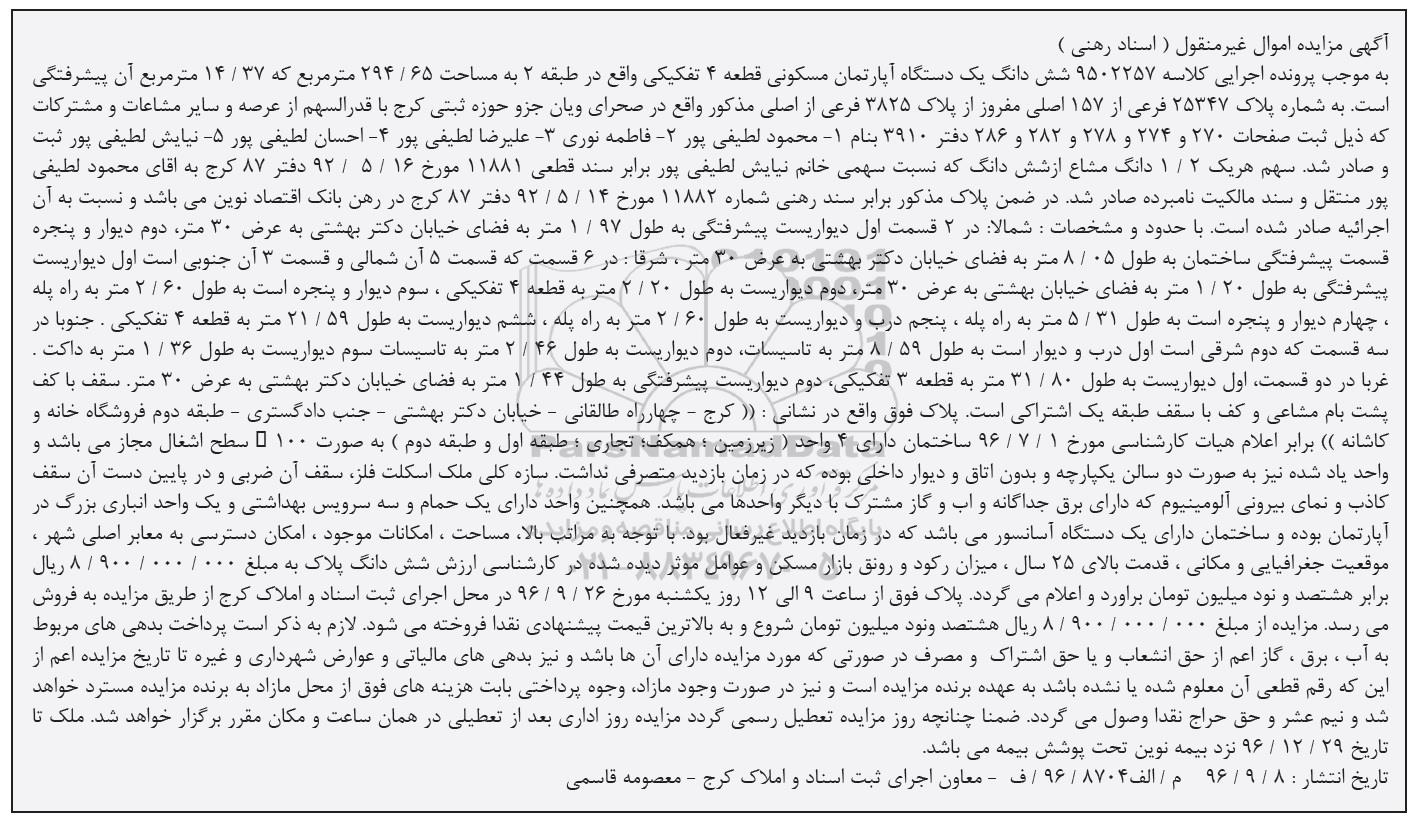 آگهی مزایده اموال غیرمنقول ( اسناد رهنی )
به موجب پرونده اجرایی کلاسه ۹۵۰۲۲۵۷ شش دانگ یک دستگاه آپارتمان مسکونی قطعه ۴ تفکیکی واقع در طبقه ۲ به مساحت ۶۵ / ۲۹۴ مترمربع که ۳۷ / ۱۴ مترمربع آن پیشرفتگی
است. به شماره پلاک ۲۵۳۴۷ فرعی از ۱۵۷ اصلی مفروز از پلاک ۳۸۲۵ فرعی از اصلی مذکور واقع در صحرای ویان جزو حوزه ثبتی کرج با قدرالسهم از عرصه و سایر مشاعات و مشترکات
که ذیل ثبت صفحات ۲۷۰ و ۲۷۴ و ۲۷۸ و ۲۸۲ و ۲۸۶ دفتر ۳۹۱۰ بنام ۱- محمود لطیفی پور ۲- فاطمه نوری ۳- علیرضا لطیفی پور ۴- احسان لطیفی پور ۵- نیایش لطیفی پور ثبت
و صادر شد. سهم هریک ۲ / ۱ دانگ مشاع ازشش دانگ که نسبت سهمی خانم نیایش لطیفی پور برابر سند قطعی ۱۱۸۸۱ مورخ ۱۶ / ۵ / ۹۲ دفتر ۸۷ کرج به اقای محمود لطیفی
پور منتقل و سند مالکیت نامبرده صادر شد. در ضمن پلاک مذکور برابر سند رهنی شماره ۱۱۸۸۲ مورخ ۱۴ / ۵ / ۹۲ دفتر ۸۷ کرج در رهن بانک اقتصاد نوین می باشد و نسبت به آن
اجرائیه صادر شده است. با حدود و مشخصات : شمالا: در ۲ قسمت اول دیواریست پیشرفتگی به طول ۹۷ / ۱ متر به فضای خیابان دکتر بهشتی به عرض ۳۰ متر، دوم دیوار و پنجره
قسمت پیشرفتگی ساختمان به طول ۰۵ / ۸ متر به فضای خیابان دکتر بهشتی به عرض ۳۰ متر ، شرقا : در ۶ قسمت که قسمت ۵ آن شمالی و قسمت ۳ آن جنوبی است اول دیواریست
پیشرفتگی به طول ۲۰ / ۱ متر به فضای خیابان بهشتی به عرض ۳۰ متر، دوم دیواریست به طول ۲۰ / ۲ متر به قطعه ۴ تفکیکی ، سوم دیوار و پنجره است به طول ۶۰ / ۲ متر به راه پله
، چهارم دیوار و پنجره است به طول ۳۱ / ۵ متر به راه پله ، پنجم درب و دیواریست به طول ۶۰ / ۲ متر به راه پله ، ششم دیواریست به طول ۵۹ / ۲۱ متر به قطعه ۴ تفکیکی . جنوبا در
سه قسمت که دوم شرقی است اول درب و دیوار است به طول ۵۹ / ۸ متر به تاسیسات، دوم دیواریست به طول ۴۶ / ۲ متر به تاسیسات سوم دیواریست به طول ۳۶ / ۱ متر به داکت .
غربا در دو قسمت، اول دیواریست به طول ۸۰ / ۳۱ متر به قطعه ۳ تفکیکی، دوم دیواریست پیشرفتگی به طول ۴۴ / ۱ متر به فضای خیابان دکتر بهشتی به عرض ۳۰ متر. سقف با کف
پشت بام مشاعی و کف با سقف طبقه یک اشتراکی است. پلاک فوق واقع در نشانی : (( کرج - چهارراه طالقانی - خیابان دکتر بهشتی - جنب دادگستری - طبقه دوم فروشگاه خانه و
کاشانه )) برابر اعلام هیات کارشناسی مورخ ۱ / ۷ / ۹۶ ساختمان دارای ۴ واحد ( زیرزمین ؛ همکف؛ تجاری ؛ طبقه اول و طبقه دوم ) به صورت ۱۰۰ سطح اشغال مجاز می باشد و
واحد یاد شده نیز به صورت دو سالن یکپارچه و بدون اتاق و دیوار داخلی بوده که در زمان بازدید متصرفی نداشت. سازه کلی ملک اسکلت فلز، سقف آن ضربی و در پایین دست آن سقف
کاذب و نمای بیرونی آلومینیوم که دارای برق جداگانه و اب و گاز مشترک با دیگر واحدها می باشد. همچنین واحد دارای یک حمام و سه سرویس بهداشتی و یک واحد انباری بزرگ در
آپارتمان بوده و ساختمان دارای یک دستگاه آسانسور می باشد که در زمان بازدید غیرفعال بود. با توجه به مراتب بالا، مساحت ، امکانات موجود ، امکان دسترسی به معابر اصلی شهر ،
موقعیت جغرافیایی و مکانی ، قدمت بالای ۲۵ سال ، میزان رکود و رونق بازار مسکن و عوامل موثر دیده شده در کارشناسی ارزش شش دانگ پلاک به مبلغ ۰۰۰ / ۰۰۰ / ۹۰۰ / ۸ ریال
برابر هشتصد و نود میلیون تومان براورد و اعلام می گردد. پلاک فوق از ساعت ۹ الی ۱۲ روز یکشنبه مورخ ۲۶ / ۹ / ۹۶ در محل اجرای ثبت اسناد و املاک کرج از طریق مزایده به فروش
می رسد. مزایده از مبلغ ۰۰۰ / ۰۰۰ / ۹۰۰ / ۸ ریال هشتصد ونود میلیون تومان شروع و به بالاترین قیمت پیشنهادی نقدا فروخته می شود. لازم به ذکر است پرداخت بدهی های مربوط
به آب ، برق ، گاز اعم از حق انشعاب و یا حق اشتراک و مصرف در صورتی که مورد مزایده دارای آن ها باشد و نیز بدهی های مالیاتی و عوارض شهرداری و غیره تا تاریخ مزایده اعم از
این که رقم قطعی آن معلوم شده یا نشده باشد به عهده برنده مزایده است و نیز در صورت وجود مازاد، وجوه پرداختی بابت هزینه های فوق از محل مازاد به برنده مزایده مسترد خواهد
شد و نیم عشر و حق حراج نقدا وصول می گردد. ضمنا چنانچه روز مزایده تعطیل رسمی گردد مزایده روز اداری بعد از تعطیلی در همان ساعت و مکان مقرر برگزار خواهد شد. ملک تا
تاریخ ۲۹ / ۱۲ / ۹۶ نزد بیمه نوین تحت پوشش بیمه می باشد.
تاریخ انتشار : ۸ / ۹ / ۹۶ م / الف۸۷۰۴ / ۹۶ / ف - معاون اجرای ثبت اسناد و املاک کرج - معصومه قاسمی
ParsNamadData
۰۲۱-۸۸۳۴۹۶۷۰-۵